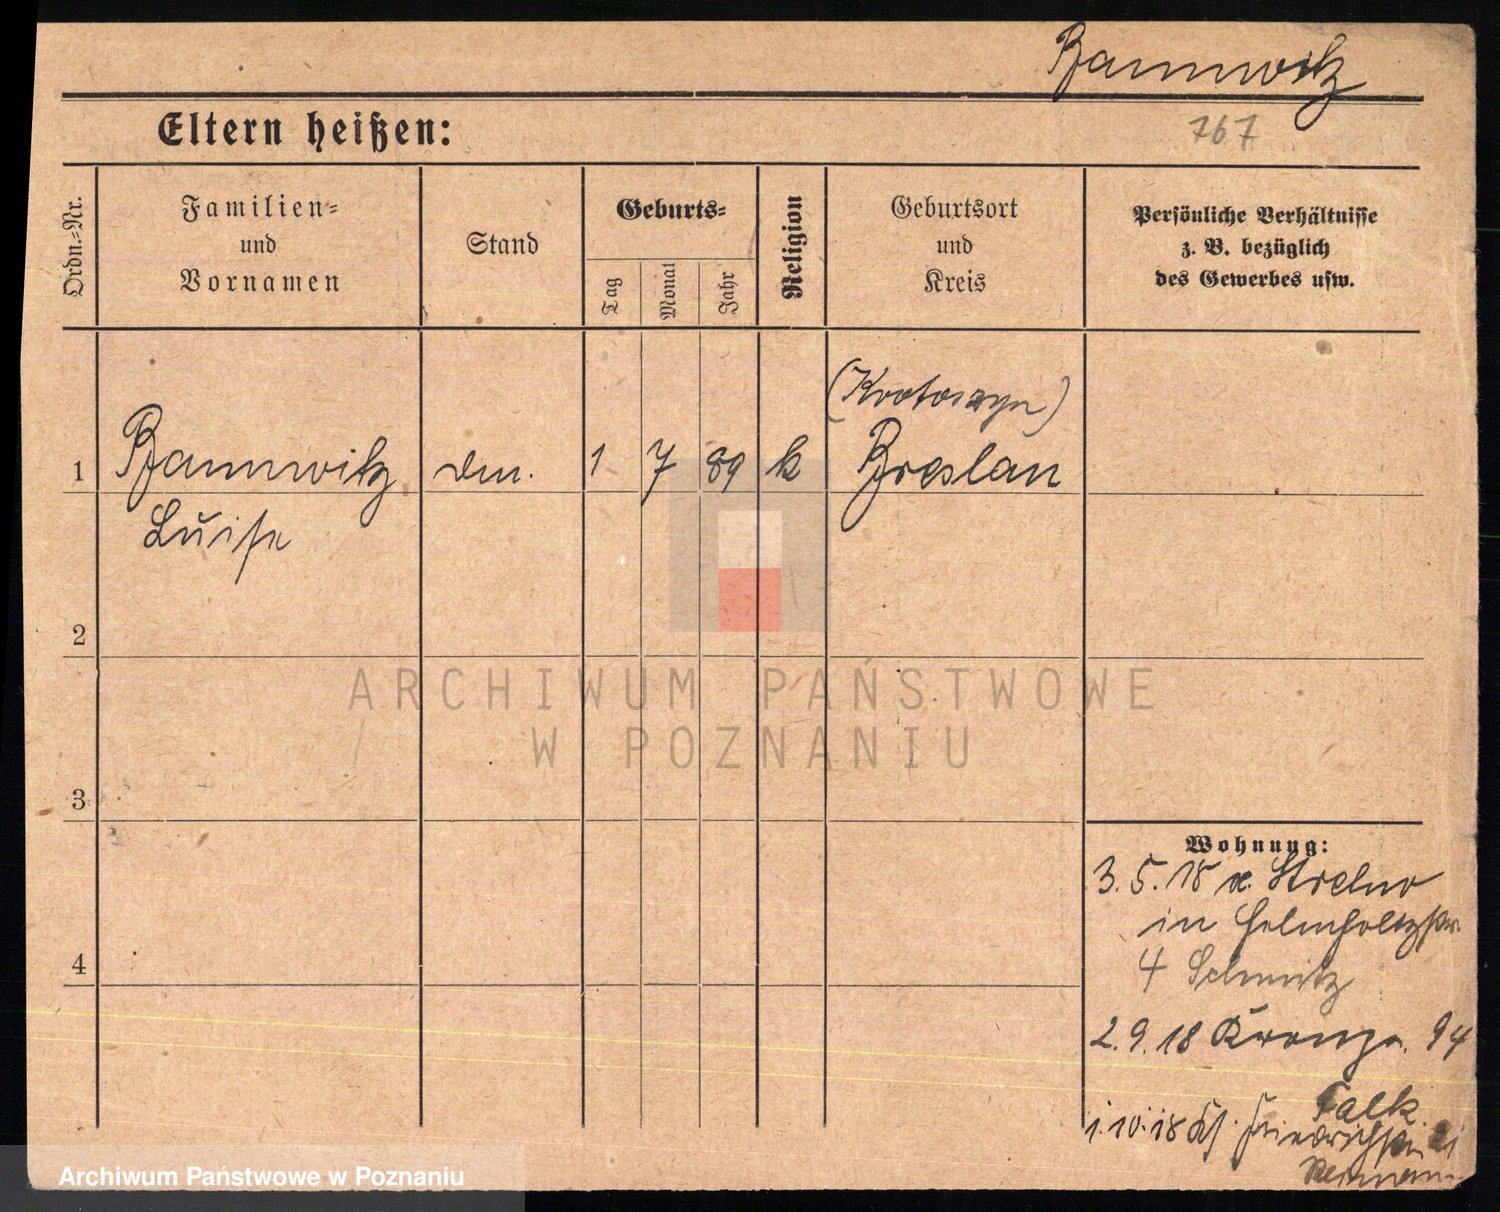 Pannwitz
Eltern heißen:
767
Ordn.-Nr.
Familien-
und
Vornamen
Stand
Geburts-
Tag
Monat
Jahr
Religion
Geburtsort
und
Kreis
Persönliche Verhältnisse
z. B. bezüglich
des Gewerbes usw.
(Krotoszyn)
1 Pannwitz 1 7 89 k Breslau
Luise
2
3
4
Wohnung:
3.5.18 Strelno
in Helmholtzstr.
4 Schmitz
2.9.18 Kronpr. 94
Falk
1.10.18 Friedrichstr. 21
ARCHIWUM PAŃSTWOWE
W POZNANIU
Archiwum Państwowe w Poznaniu